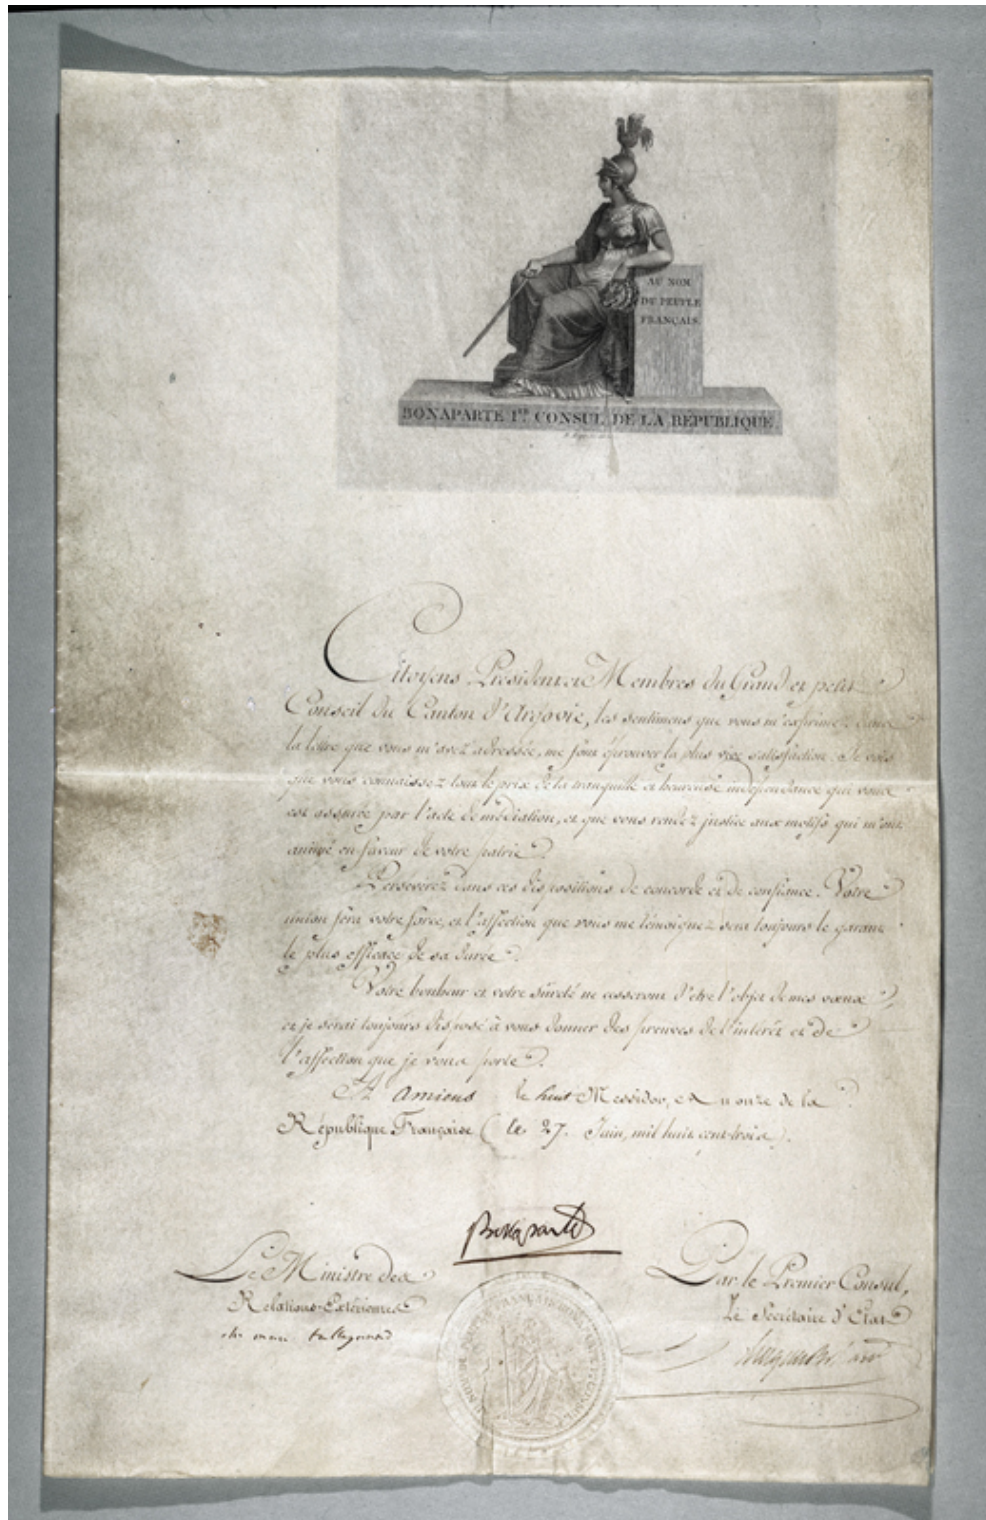 AU NOM
DU PEUPLE
FRANÇAIS.
BONAPARTE I.ER CONSUL DE LA REPUBLIQUE.
Citoyens Président et Membres du Grand et petit
Conseil du Canton d'Argovie, les sentimens que vous m'exprimez dans
la lettre que vous m'avez adressée, me font éprouver la plus vive satisfaction. Je vois
que vous connaissez tout le prix de la tranquille et heureuse indépendance qui vous
est assurée par l'acte de médiation, et que vous rendez justice aux motifs qui m'ont
animé en faveur de votre patrie.
Persévérez dans ces dispositions de concorde et de confiance. Votre
union fera votre force, et l'affection que vous me témoignez sera toujours le garant
le plus efficace de sa durée.
Votre bonheur et votre sûreté ne cesseront d'être l'objet de mes vœux
et je serai toujours disposé à vous donner des preuves de l'intérêt et de
l'affection que je vous porte.
A Amiens le huit Messidor, an onze de la
République Française (le 27. Juin, mil huit cent trois).
Bonaparte
Le Ministre des
Relations Extérieures
ch. mau. talleyrand
Par le Premier Consul,
Le Secrétaire d'Etat